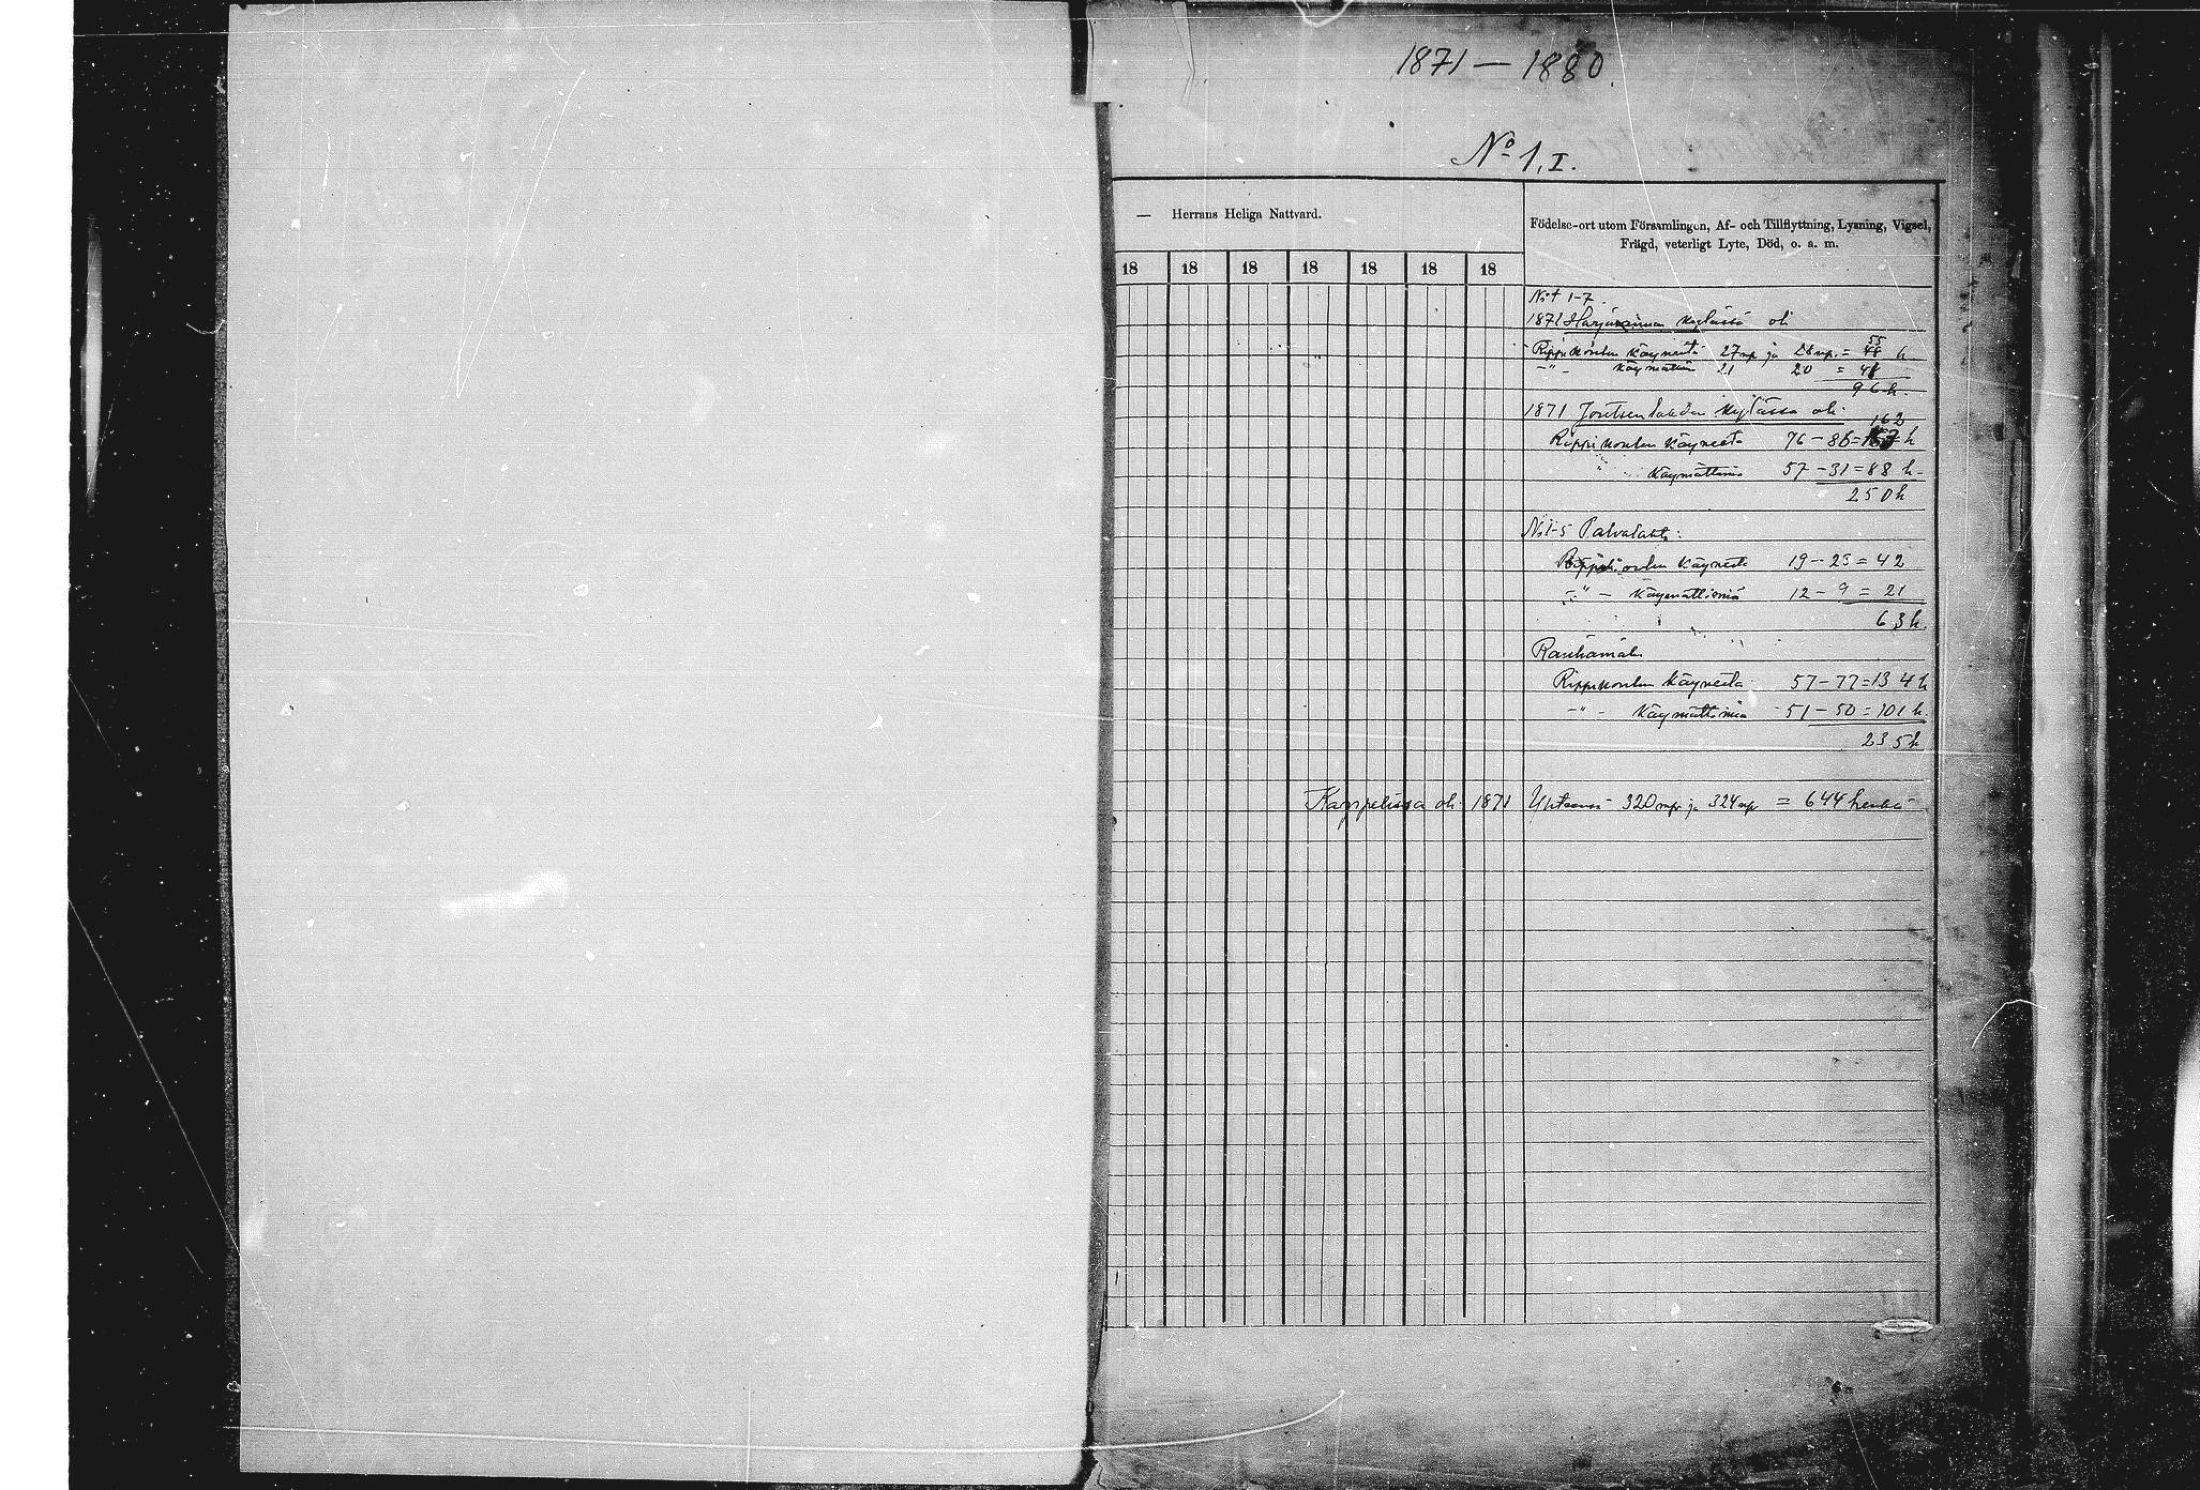 1871 — 1880.
No 1, I.
— Herrans Heliga Nattvard.
Födelse-ort utom Församlingen, Af- och Tillflyttning, Lysning, Vigsel,
Frägd, veterligt Lyte, Död, o. a. m.
18 18 18 18 18 18 18
No 1-7.
1871 Harjurannan kylässä oli
55
Rippikoulun käyneitä 27 mp ja 28 np. = 48 h
-"- käymättömiä 21 20 = 41
96 h.
1871 Joutsenlahden kylässä oli
162
Rippikoulun käyneitä 76 - 86 = h
" käymättömiä 57 - 31 = 88 h-
250 h
No 1-5 Palvalahti:
Rippikoulun käyneitä 19 - 23 = 42
-"- käymättömiä 12 - 9 = 21
63 h.
Rauhamäki
Rippikoulun käyneitä 57 - 77 = 134 h
-"- käymättömiä 51 - 50 = 101 h.
235 h
Kappelissa oli 1871 Yhteensä 320 mp ja 324 np = 644 henkeä